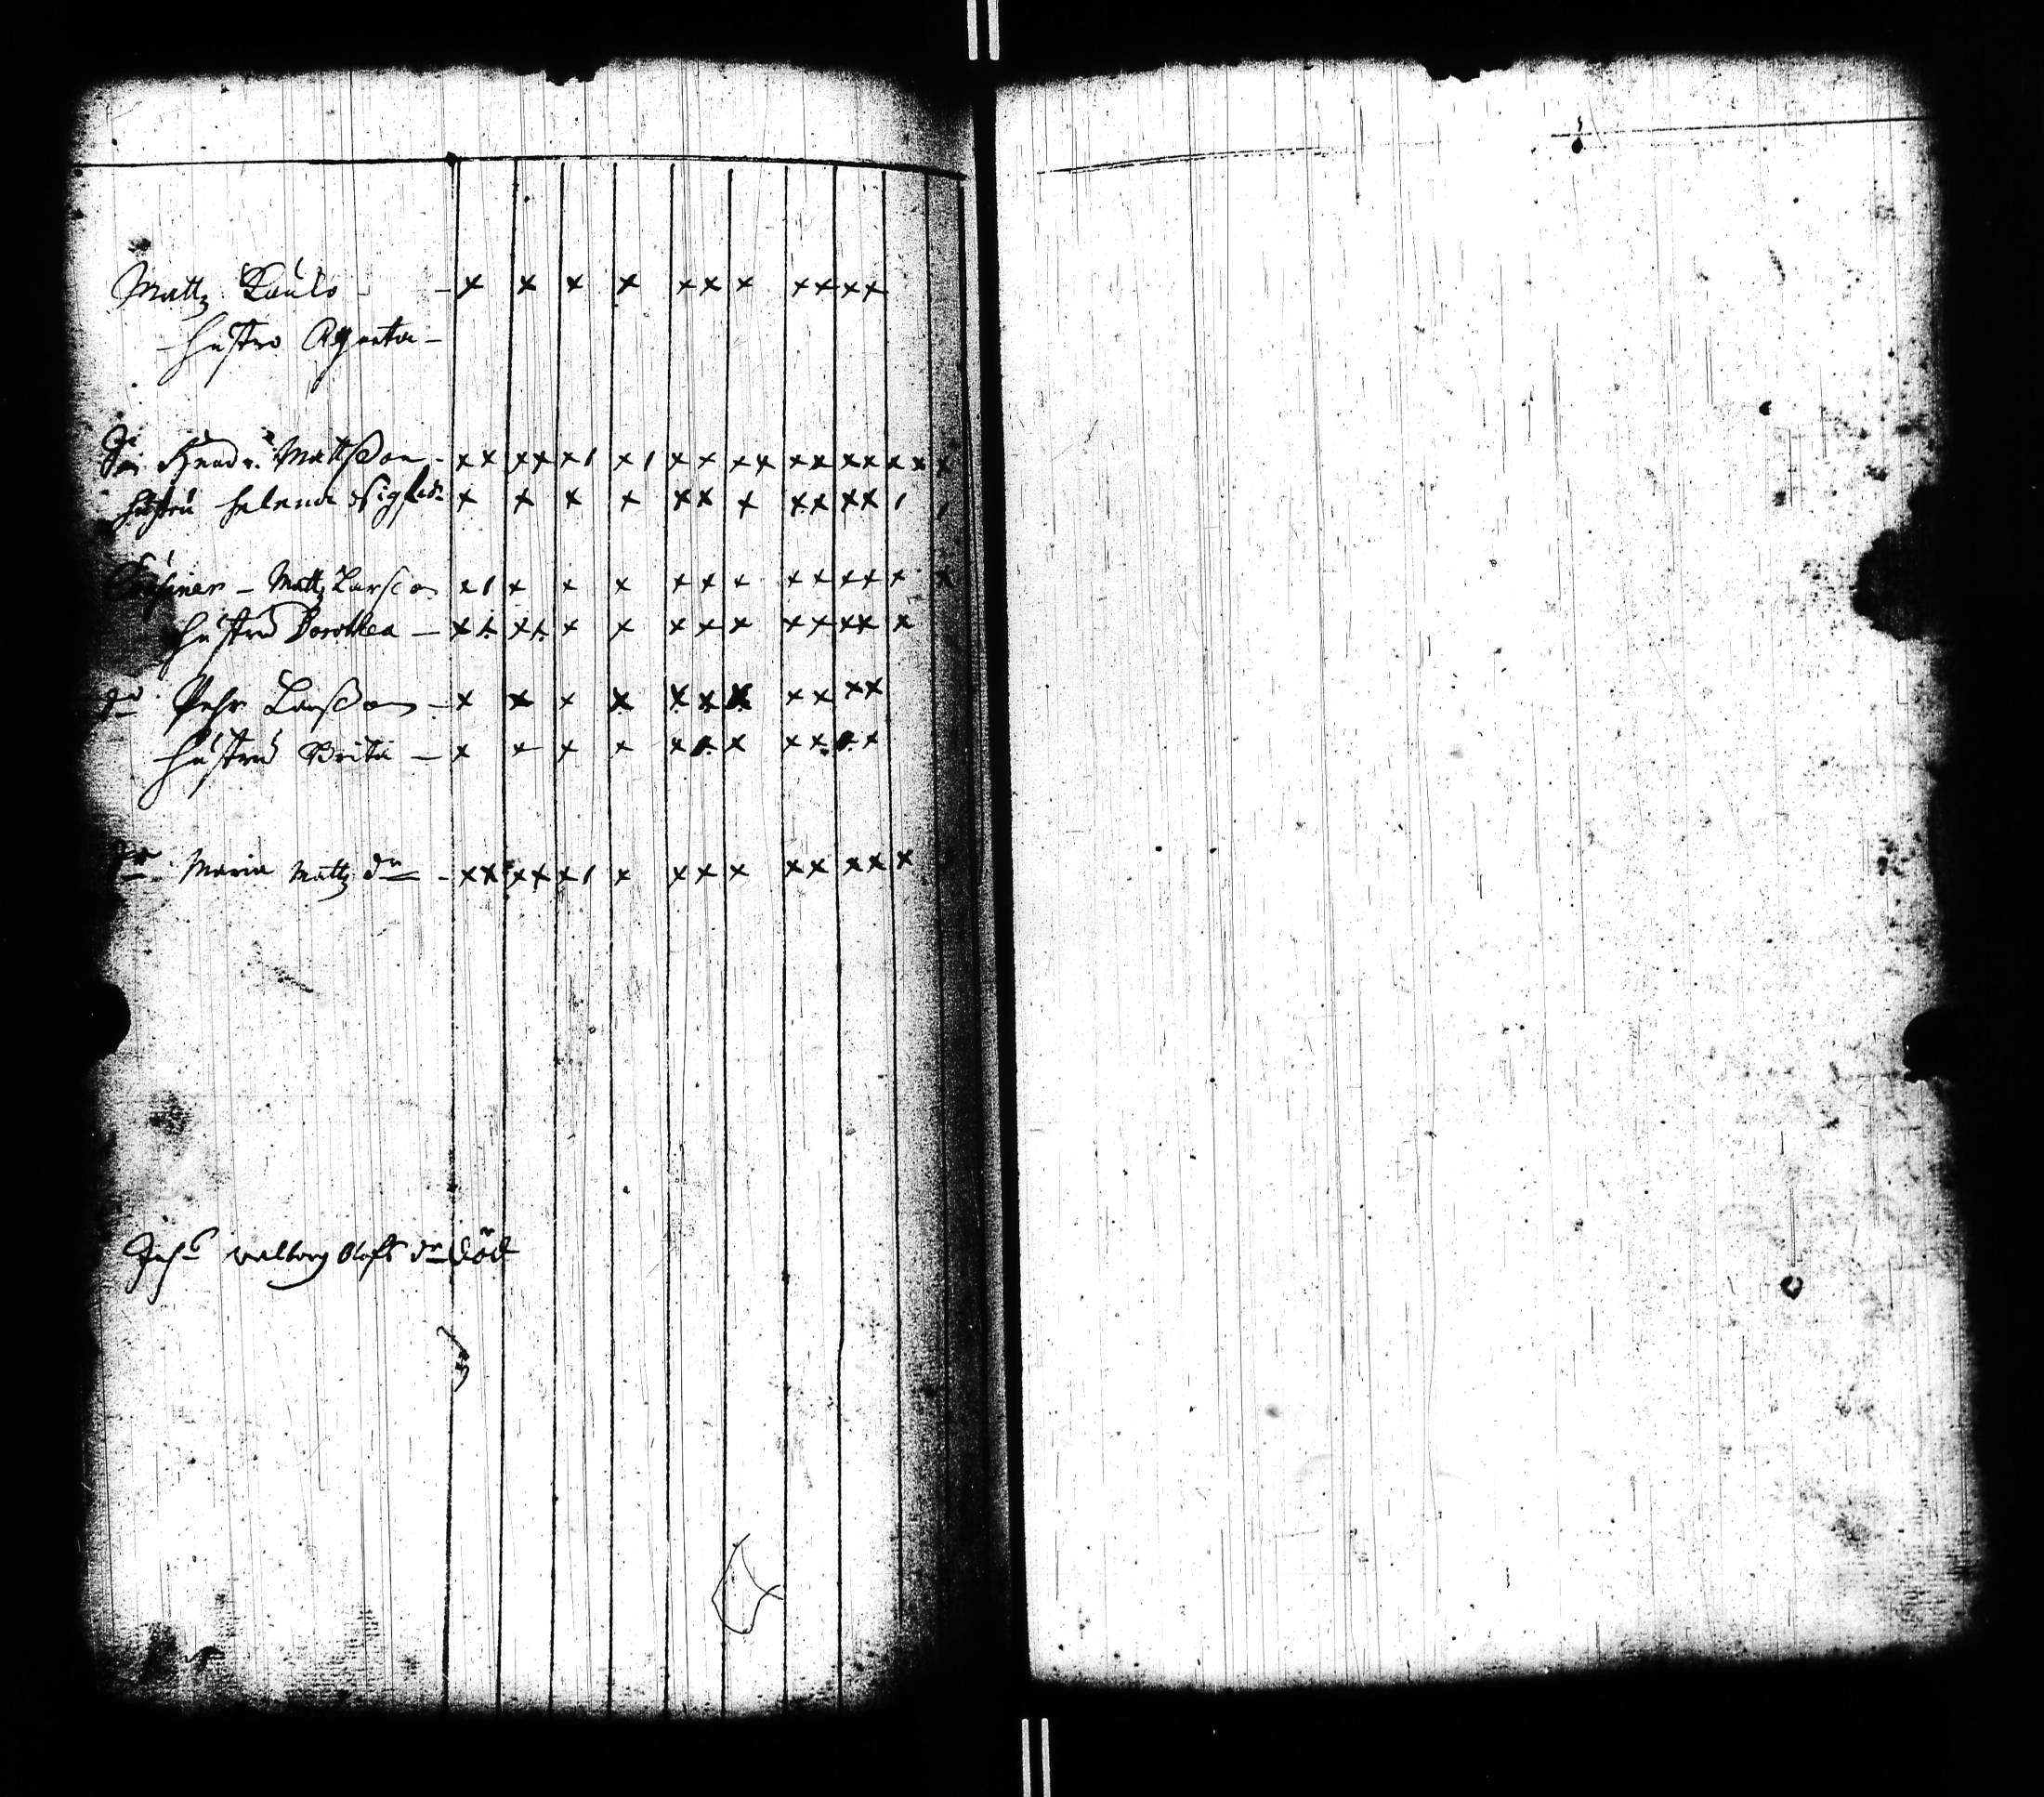 Mattz Påuls - - x x x x x x x x x x x
- Hustro Agneta -
Hendr. Mattsson - x x x x x 1 x 1 x x x x x x x x x x x
hustru helena Sigfredr x x x x x x x x x x x 1 1
- Mattz Larsson x 1 x x x x x x x x x x x x
hustru Dorothea - x x x x x x x x x x x x x x
do Pehr Larsson - x x x x x x x x x x x
hustru Brita - x x x x x x x x x x x
Maria Mattz dr - x x x x x 1 x x x x x x x x x
walborg Olofs dr död